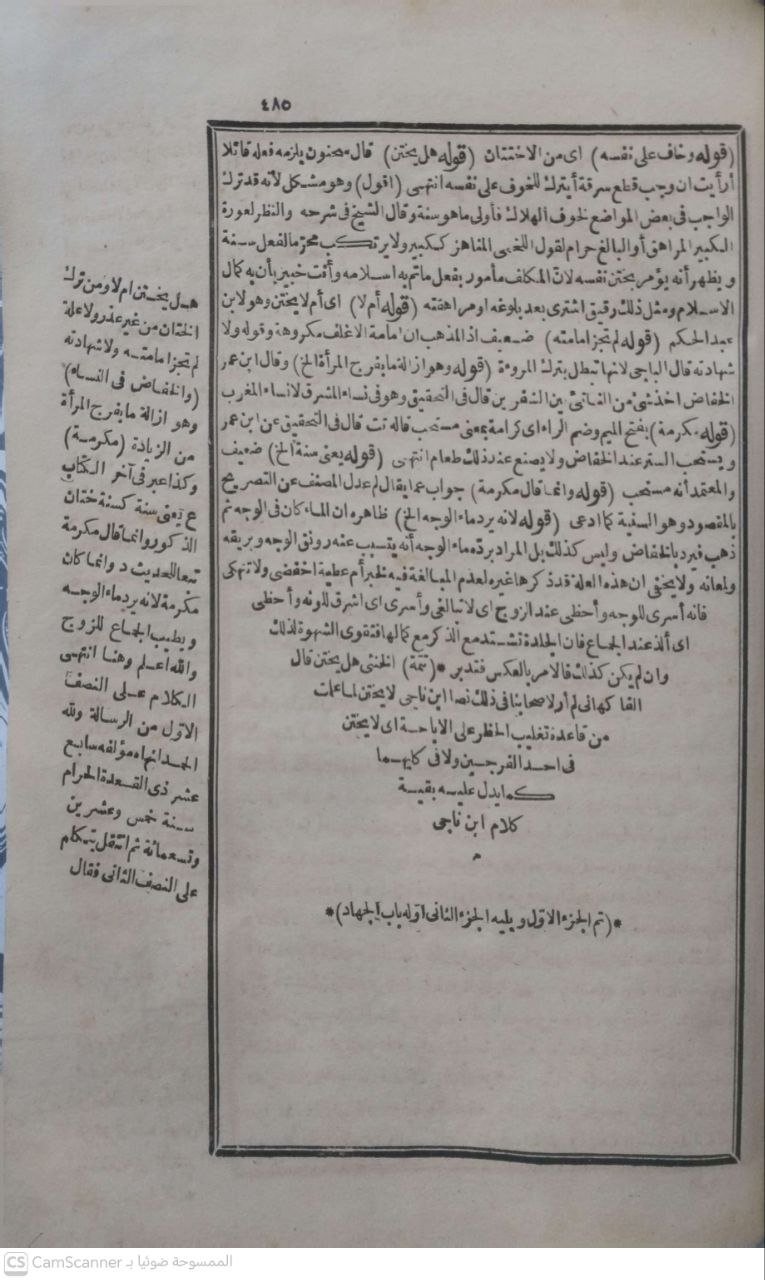 ٤٨٥
(قوله وخاف على نفسه) اى من الاختتان (قوله هل يختن) قال سحنون يلزمه فعله قائلا
أرأيت ان وجب قطع سرقة أيترك للخوف على نفسه انتهى (اقول) وهو مشكل لأنه قد ترك
الواجب فى بعض المواضع لخوف الهلاك فأولى ماهو سنة وقال الشيخ فى شرحه والنظر لعورة
الكبير المراهق أو البالغ حرام لقول اللخمى المناهز ككبير ولا يرتكب محرم الفعل سنة
ويظهر أنه يؤمر بختن نفسه لان المكلف مأمور بفعل ماتم به اسلامه وأنت خبير بأن به كمال
الاسلام ومثل ذلك رقيق اشترى بعد بلوغه او مراهقته (قوله أم لا) اى أم لا يختن وهو لابن
عبد الحكم (قوله لم تجز امامته) ضعيف اذ المذهب ان امامة الاغلف مكروهة وقوله ولا
شهادته قال الباجى لانها تبطل بترك المروءة (قوله وهو ازالة ما بفرج المرأة الخ) وقال ابن عمر
الخفاض اخذ شئ من الناتئ بين الشفرين قال فى التحقيق وهو فى نساء المشرق لا نساء المغرب
(قوله مكرمة) بفتح الميم وضم الراء اى كرامة بمعنى مستحب قاله تت قال فى التحقيق عن ابن عمر
ويستحب الستر عند الخفاض ولا يصنع عند ذلك طعام انتهى (قوله يعنى سنة الخ) ضعيف
والمعتمد أنه مستحب (قوله وانما قال مكرمة) جواب عما يقال لم عدل المصنف عن التصريح
بالمقصود وهو السنية كما ادعى (قوله لانه يرد ماء الوجه الخ) ظاهره ان الماء كان فى الوجه ثم
ذهب فيرد بالخفاض وليس كذلك بل المراد برده ماء الوجه أنه يتسبب عنه رونق الوجه وبريقه
ولمعانه ولا يخفى ان هذه العلة قد ذكرها غيره لعدم المبالغة فيه لخبر أم عطية اخفضى ولا تنهكى
فانه أسرى للوجه وأحظى عند الزوج اى لا تبالغى وأسرى اى اشرق للونه وأحظى
اى ألذ عند الجماع فان الجلدة تشتد مع الذكر مع كمالها فتقوى الشهوة لذلك
وان لم يكن كذلك فالامر بالعكس فتدبر * (تتمة) الخنثى هل يختن قال
الفاكهانى لم أر لاصحابنا فى ذلك نصا ابن ناجى لا يختن لما علمت
من قاعدة تغليب الحظر على الاباحة اى لا يختن
فى احد الفرجين ولا فى كليهما
كما يدل عليه بقية
كلام ابن ناجى
*(تم الجزء الاول ويليه الجزء الثانى اوله باب الجهاد)*
هل يختتن أم لا ومن ترك
الختان من غير عذر ولا علة
لم تجز امامته ولا شهادته
(والخفاض فى النساء)
وهو ازالة ما بفرج المرأة
من الزيادة (مكرمة)
وكذا عبر فى آخر الكتاب
ع يعنى سنة كسنة ختان
الذكور وانما قال مكرمة
تبعا للحديث د وانما كان
مكرمة لانه يرد ماء الوجه
ويطيب الجماع للزوج
والله اعلم وهنا انتهى
الكلام على النصف
الاول من الرسالة ولله
الحمد انهاه مؤلفه سابع
عشر ذى القعدة الحرام
سنة خمس وعشرين
وتسعمائة ثم انتقل يتكلم
على النصف الثانى فقال
CS CamScanner الممسوحة ضوئيا بـ